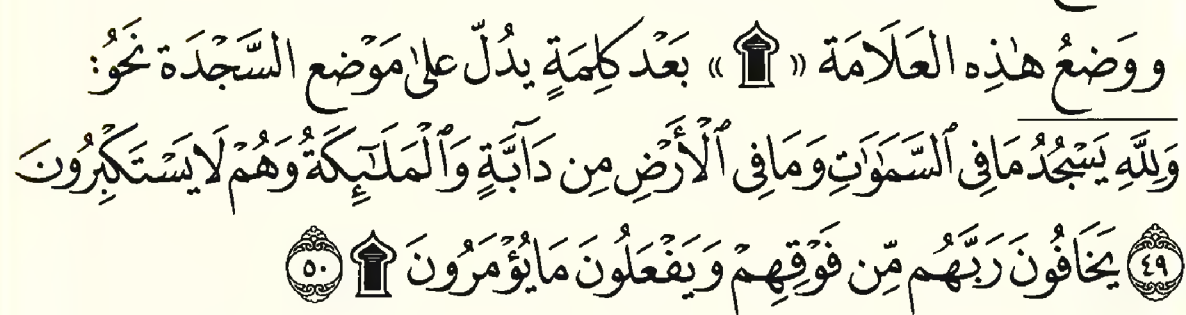 ووَضعُ هٰذِه العَلَامَة « ۩ » بَعْد كَلِمَةٍ يدُلّ علىٰ مَوْضع السَّجْدَة نَحْوُ:
وَلِلَّهِ يَسْجُدُ مَا فِي ٱلسَّمَٰوَٰتِ وَمَا فِي ٱلْأَرْضِ مِن دَآبَّةٍ وَٱلْمَلَٰٓئِكَةُ وَهُمْ لَا يَسْتَكْبِرُونَ
۝٤٩ يَخَافُونَ رَبَّهُم مِّن فَوْقِهِمْ وَيَفْعَلُونَ مَا يُؤْمَرُونَ ۩ ۝٥٠